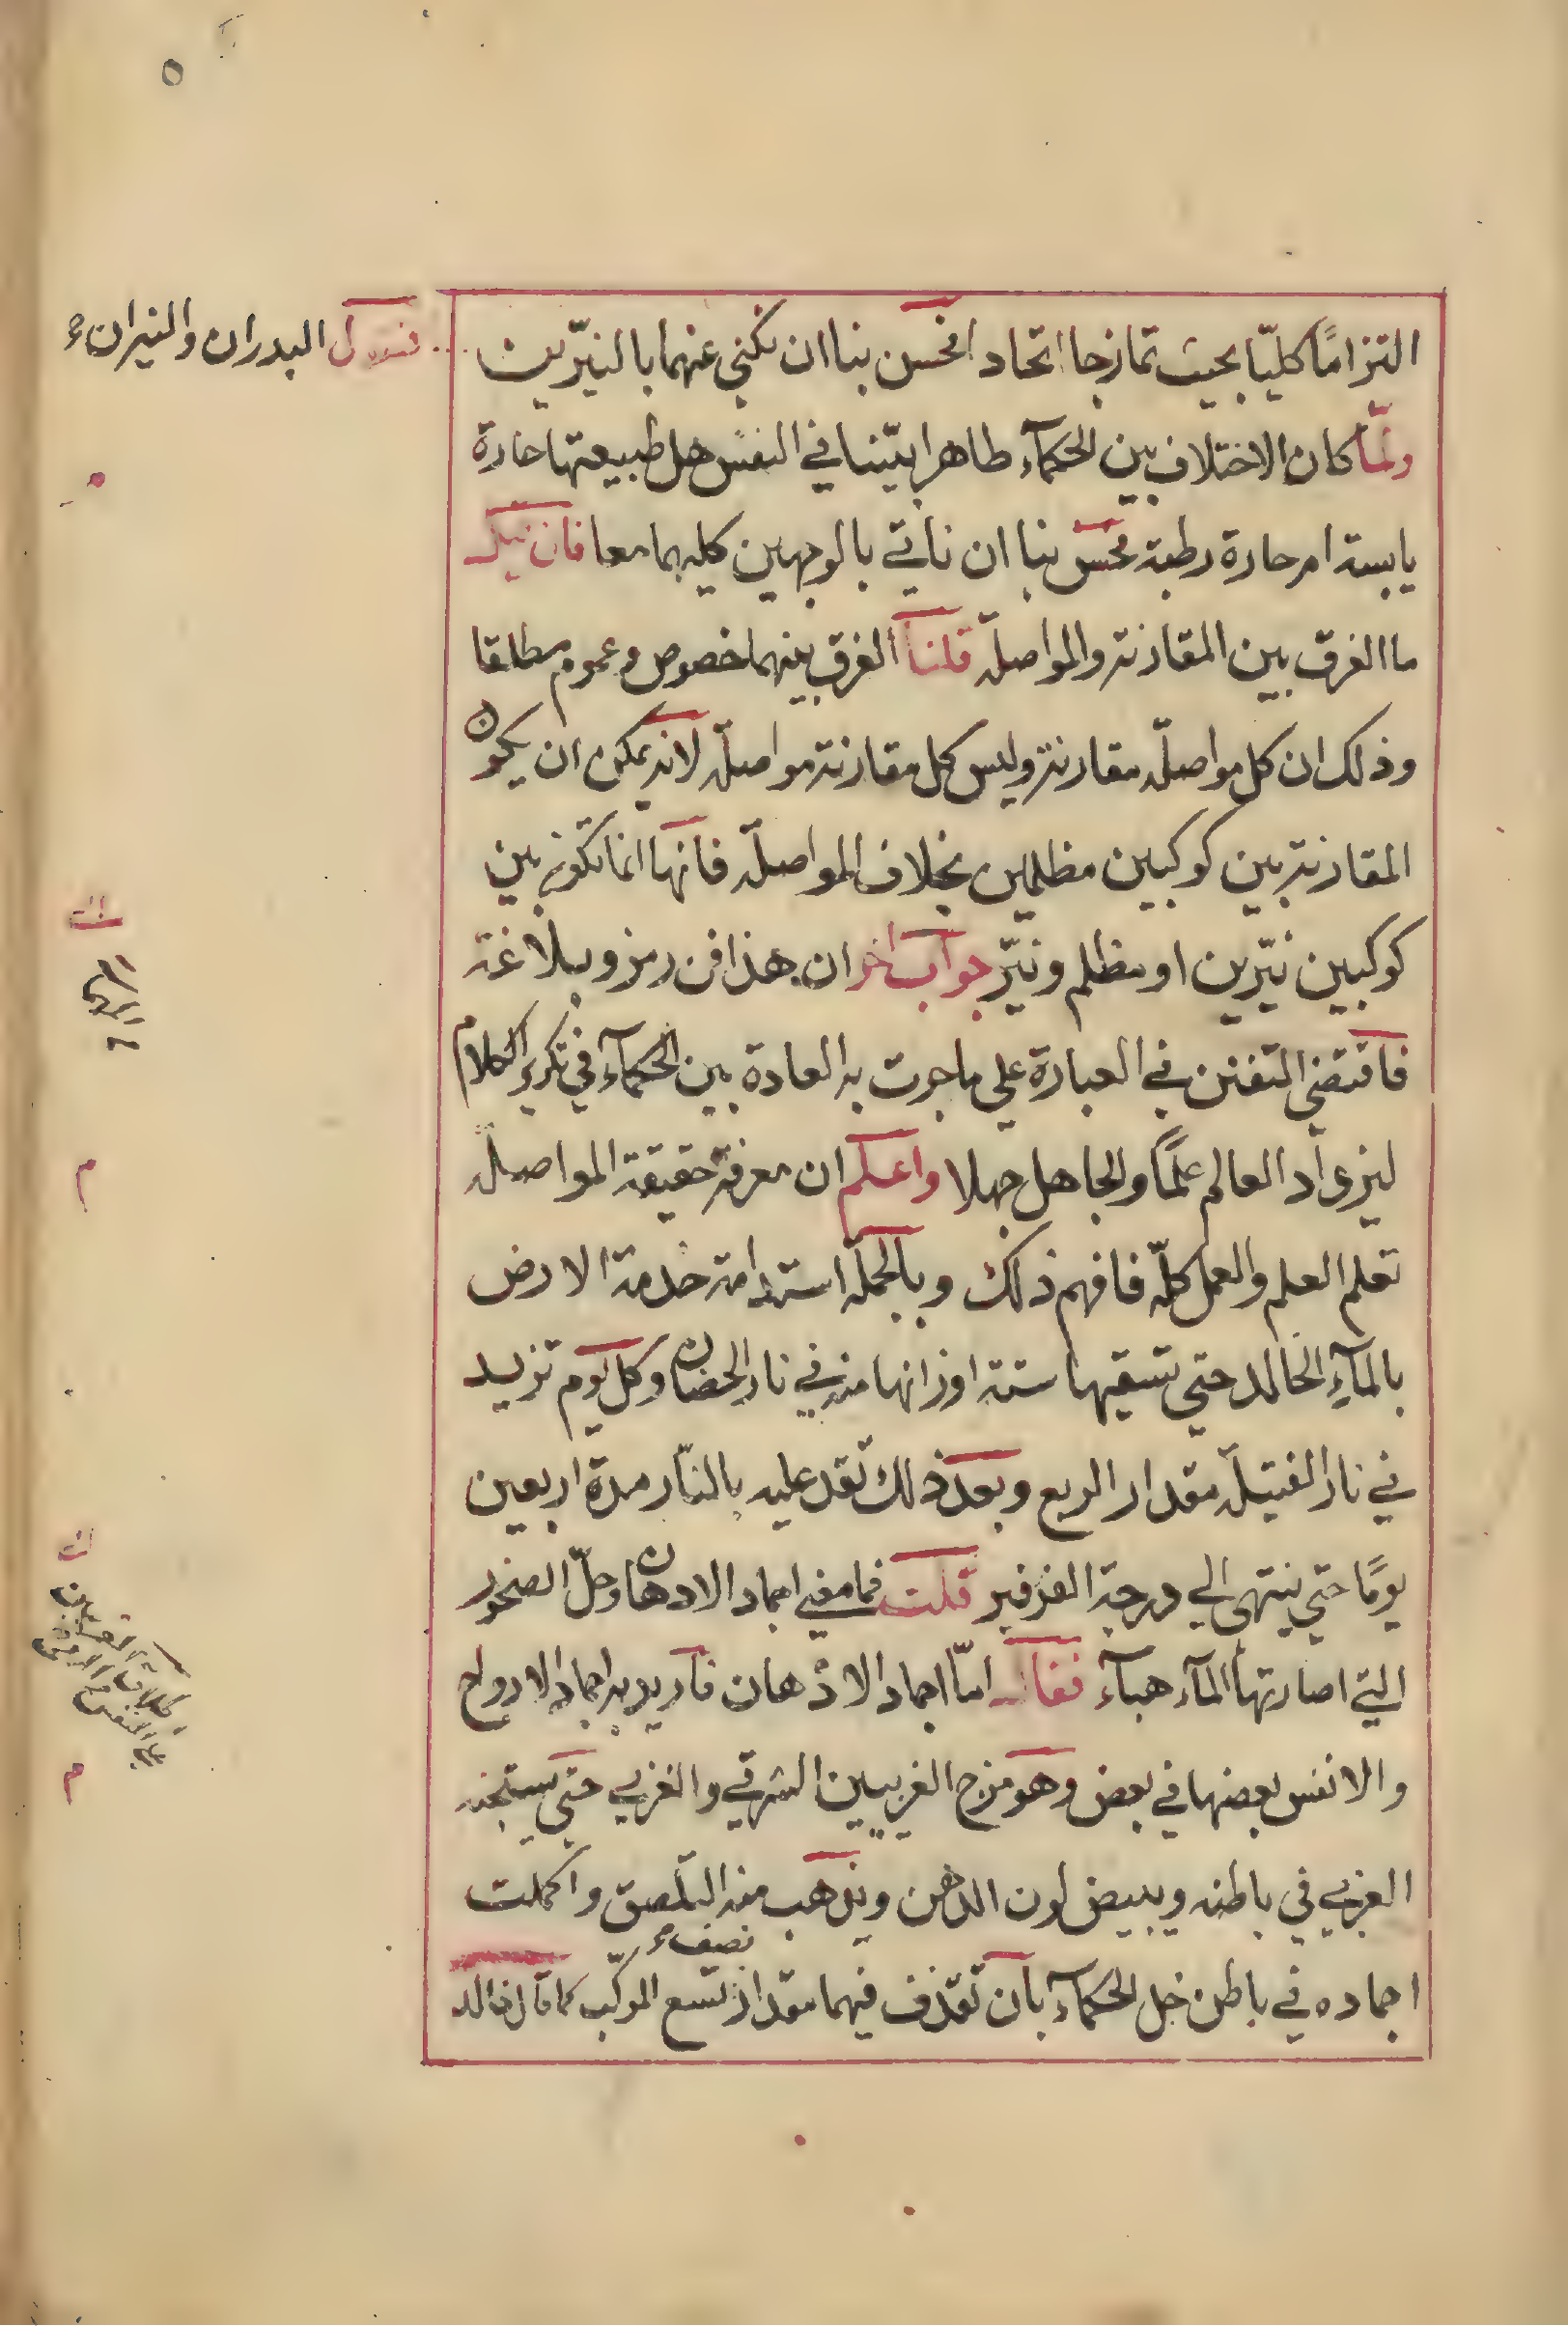 التزامًا كليّا بحيث تمازجا اتحادا فحسن بنا ان نكني عنهما بالنيّرين
البدران والنيران
ولمّا كان الاختلاف بين الحكمآء ظاهرا بيّنا في النفس هل طبيعتها حارة
يابسة ام حارة رطبة فحسن بنا ان ناتي بالوجهين كليهما معا فان قيل
ما الفرق بين المقارنة والمواصلة قلنا الفرق بينهما خصوص وعموم مطلقا
وذلك ان كل مواصلة مقارنة وليس كل مقارنة مواصلة لانه يمكن ان يكون
المقارنة بين كوكبين مظلمين بخلاف المواصلة فانها انما تكون بين
كوكبين نيّرين او مظلم ونيّر جواب اخر ان هذا فن رمز وبلاغة
فاقتضي التفنن في العبارة علي ما جرت به العادة بين الحكمآء في تكرير الكلام
ليزداد العالم علمًا والجاهل جهلا واعلم ان معرفة حقيقة المواصلة
تعلم العلم والعمل كلّه فافهم ذلك وبالجملة استدامة خدمة الارض
بالمآء الخالد حتي تسقيها ستة اوزانها منه في نار الحضان وكل يوم تزيد
في نار الفتيلة مقدار الربع وبعد ذلك تقد عليه بالنّار مدة اربعين
يومًا حتي ينتهي الي درجة الفرفير قلت فما معني اجماد الادهان وحلّ الصخور
التي اصارتها المآء هبآء فقال امّا اجماد الادهان فاريد به اجماد الارواح
والانفس بعضها في بعض وهو مزج الغريبين الشرقي والغربي حتي يستجنه
الغربي في باطنه ويبيض لون الدهن ويذهب منه التلصق واكملت
نصف
اجماده في باطن خل الحكمآء بان تقذف فيهما مقدار تسع المركّب كما قال خالد